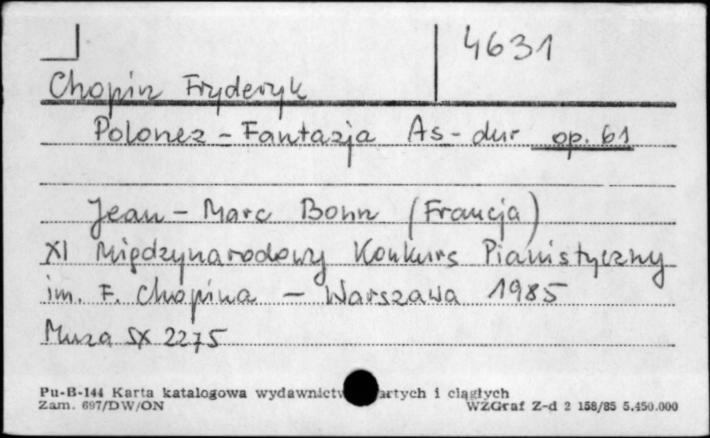 4631
Chopin Fryderyk
Polonez - Fantazja As-dur op. 61
Jean - Marc Bonn (Francja)
XI Międzynarodowy Konkurs Pianistyczny
im. F. Chopina - Warszawa 1985
Muza SX 2275
Pu-B-144 Karta katalogowa wydawnictw artych i ciągłych
Zam. 697/DW/ON WZGraf Z-d 2 158/85 5.450.000